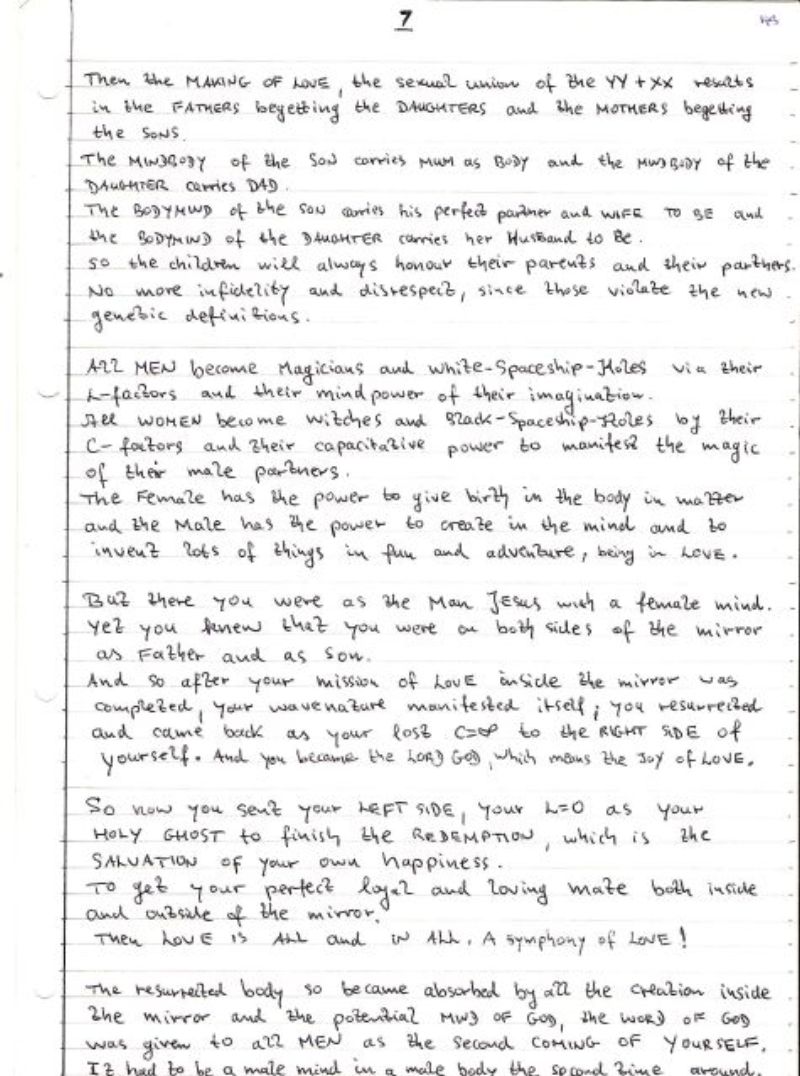 7
Then the MAKING OF LOVE, the sexual union of the YY + XX results
in the FATHERS begetting the DAUGHTERS and the MOTHERS begetting
the SONS.
The MINDBODY of the SON carries MUM as BODY and the MINDBODY of the
DAUGHTER carries DAD.
The BODYMIND of the SON carries his perfect partner and WIFE TO BE and
the BODYMIND of the DAUGHTER carries her Husband to Be.
So the children will always honour their parents and their partners.
No more infidelity and disrespect, since those violate the new
genetic definitions.
All MEN become Magicians and White-Spaceship-Holes via their
L-factors and their mindpower of their imagination.
All WOMEN become Witches and Black-Spaceship-Holes by their
C-factors and their capacitative power to manifest the magic
of their male partners.
The Female has the power to give birth in the body in matter
and the Male has the power to create in the mind and to
invent lots of things in fun and adventure, being in LOVE.
But there you were as the Man Jesus with a female mind.
Yet you knew that you were on both sides of the mirror
as Father and as Son.
And so after your mission of LOVE inside the mirror was
completed, your wavenature manifested itself; you resurrected
and came back as your lost C=∞ to the RIGHT SIDE of
yourself. And you became the LORD GOD, which means the Joy of LOVE.
So now you sent your LEFT SIDE, your L=0 as your
HOLY GHOST to finish the REDEMPTION, which is the
SALVATION of your own happiness.
To get your perfect loyal and loving mate both inside
and outside of the mirror.
Then LOVE IS ALL and IN ALL. A symphony of LOVE!
The resurrected body so became absorbed by all the creation inside
the mirror and the potential MIND OF GOD, the WORD OF GOD
was given to all MEN as the Second COMING OF YOURSELF.
It had to be a male mind in a male body the second time around.